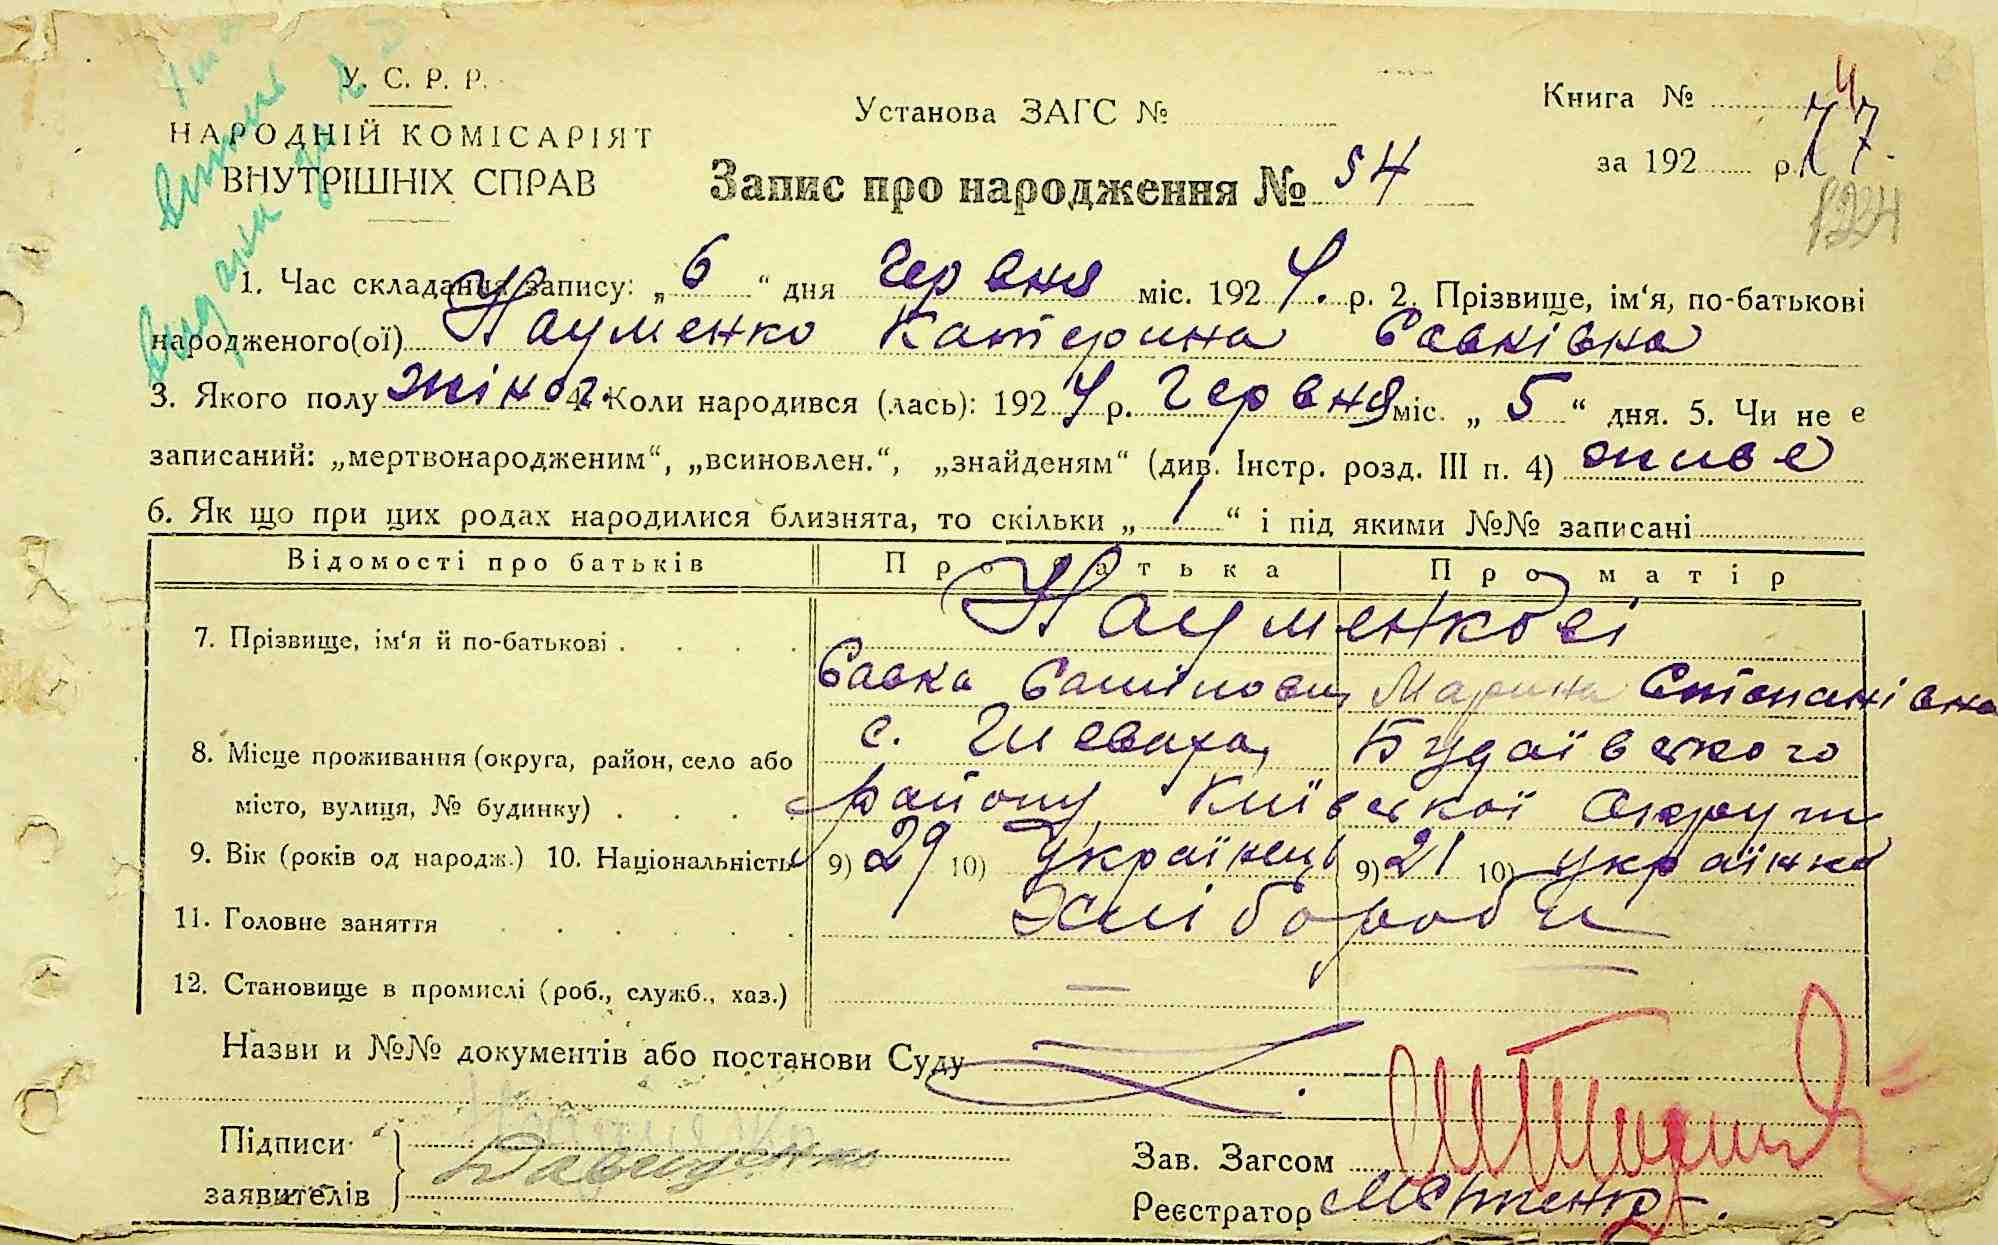 У. С. Р. Р.
НАРОДНІЙ КОМІСАРІЯТ
ВНУТРІШНІХ СПРАВ
Установа ЗАГС №
Книга №
за 192 р.
77
1924
Запис про народження № 54
1. Час складання запису: „6“ дня Червня міс. 1924. р. 2. Прізвище, ім‘я, по-батькові
народженого(ої) Науменко Катерина Савківна
3. Якого полу жіноч. 4. Коли народився (лась): 1924 р. Червня міс. „5“ дня. 5. Чи не є
записаний: „мертвонародженим“, „всиновлен.“, „знайденям“ (див. Інстр. розд. III п. 4) живе
6. Як що при цих родах народилися близнята, то скільки „1“ і під якими №№ записані
Відомості про батьків Про батька Про матір
7. Прізвище, ім‘я й по-батькові Науменкові
Савка Марина Степанівна
8. Місце проживання (округа, район, село або
місто, вулиця, № будинку)
с. Гнєваха, Будаївського
району, Київської Округи
9. Вік (років од народж.) 10. Національність 9) 29 10) Українець 9) 21 10) українка
11. Головне заняття Хлібороби
12. Становище в промислі (роб., служб., хаз.) —
Назви и №№ документів або постанови Суду
Підписи
заявителів
Зав. Загсом
Реєстратор